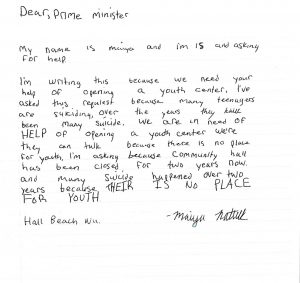 Dear, Prime minister
My name is maiya and im 15 and asking
for help.
I'm writing this because we need your
help of opening a youth center. I've
asked this request because many teenagers
are suiciding, over the years they have
been many suicide. We are in need of
HELP of opening a youth center we're
they can talk because there is no place
for youth, I'm asking because Community hall
has been closed for two years now.
and many suicide happened over two
years because THEIR IS NO PLACE
FOR YOUTH
Hall Beach Nu. -Maiya